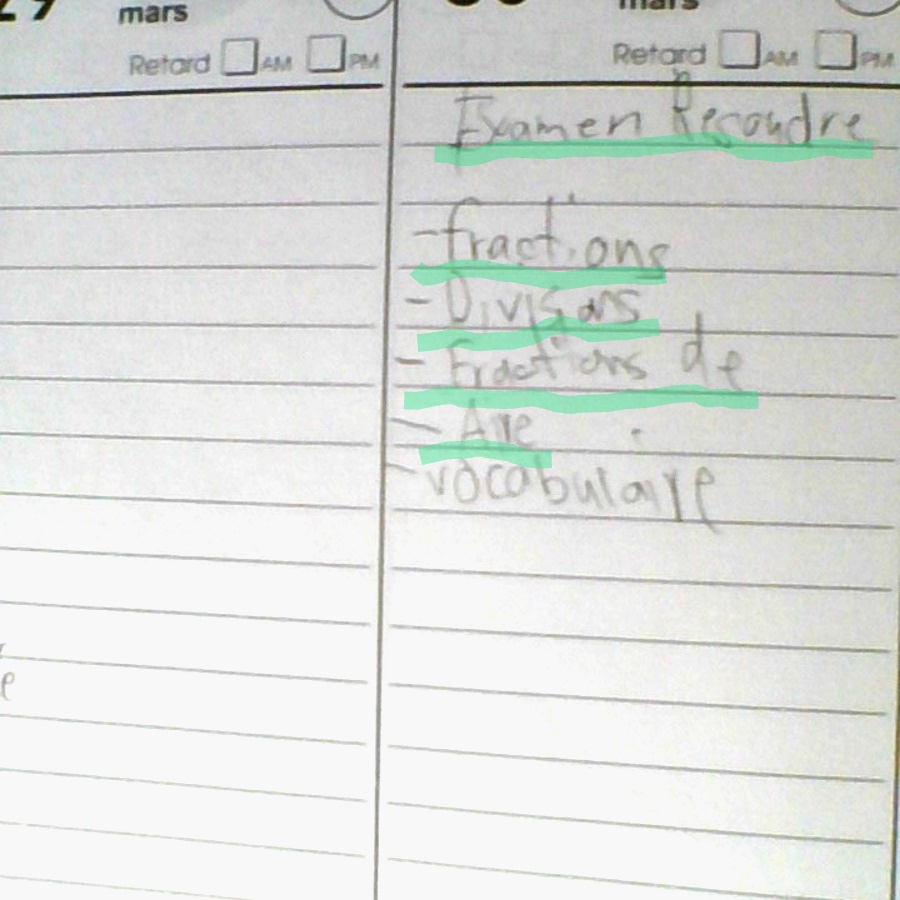 mars
Retard AM PM
mars
Retard AM PM
Examen Résoudre
-fractions
- Divisions
- Fractions de
- Aire
-vocabulaire
e